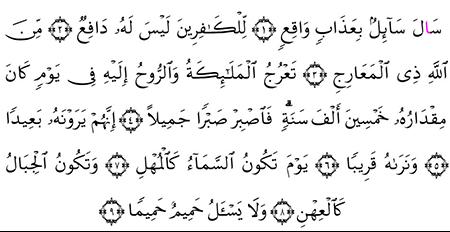 سَالَ سَآئِلُۢ بِعَذَابٍ وَاقِعٍ ﴿١﴾ لِّلْكَٰفِرِينَ لَيْسَ لَهُۥ دَافِعٌ ﴿٢﴾ مِّنَ
اللَّهِ ذِى الْمَعَارِجِ ﴿٣﴾ تَعْرُجُ الْمَلَٰٓئِكَةُ وَالرُّوحُ إِلَيْهِ فِى يَوْمٍ كَانَ
مِقْدَارُهُۥ خَمْسِينَ أَلْفَ سَنَةٍ ۗ فَاصْبِرْ صَبْرًا جَمِيلاً ﴿٤﴾ إِنَّهُمْ يَرَوْنَهُۥ بَعِيدًا
﴿٥﴾ وَنَرَىٰهُ قَرِيبًا ﴿٦﴾ يَوْمَ تَكُونُ السَّمَآءُ كَالْمُهْلِ ﴿٧﴾ وَتَكُونُ الْجِبَالُ
كَالْعِهْنِ ﴿٨﴾ وَلَا يَسْـَٔلُ حَمِيمٌ حَمِيمًا ﴿٩﴾